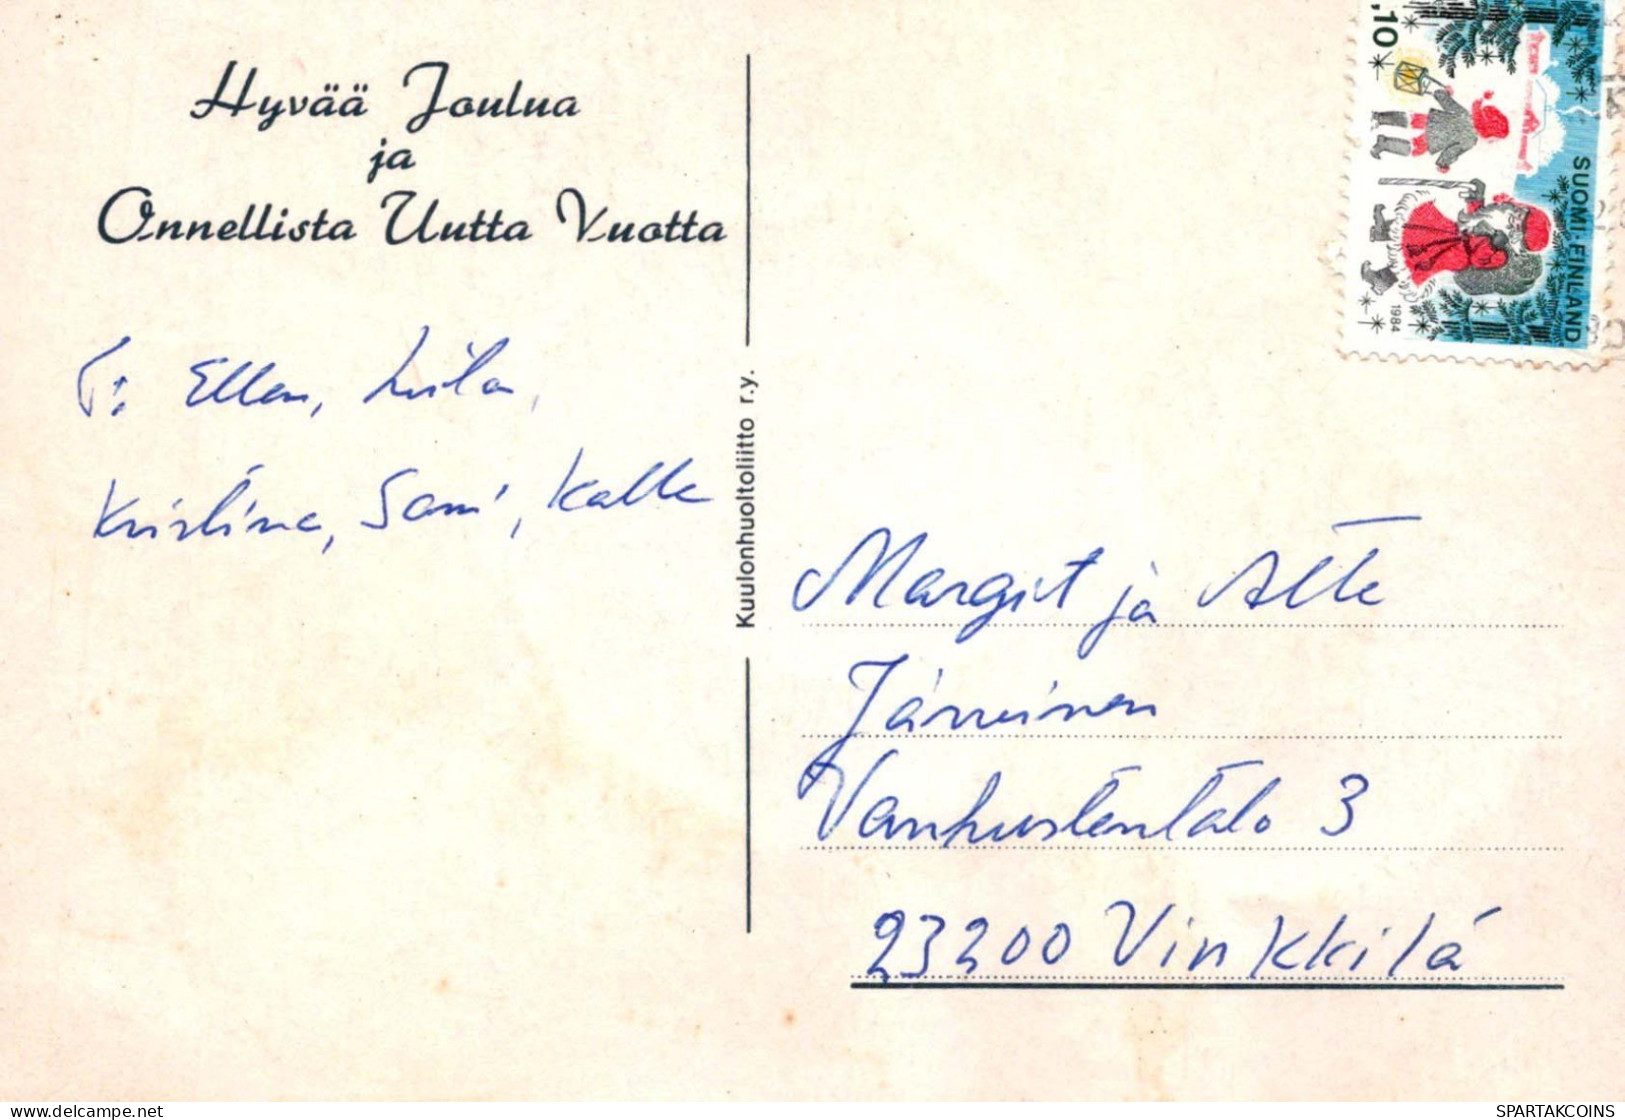 Hyvää Joulua
ja
Onnellista Uutta Vuotta
T: Ellen,
Kristina, Sami, Kalle
Kuulonhuoltoliitto r.y.
,10
SUOMI·FINLAND
1984
Margit ja Atte
Järvinen
Vanhustentalo 3
23200 Vinkkilä
https://www.delcampe.net
SPARTAKCOINS